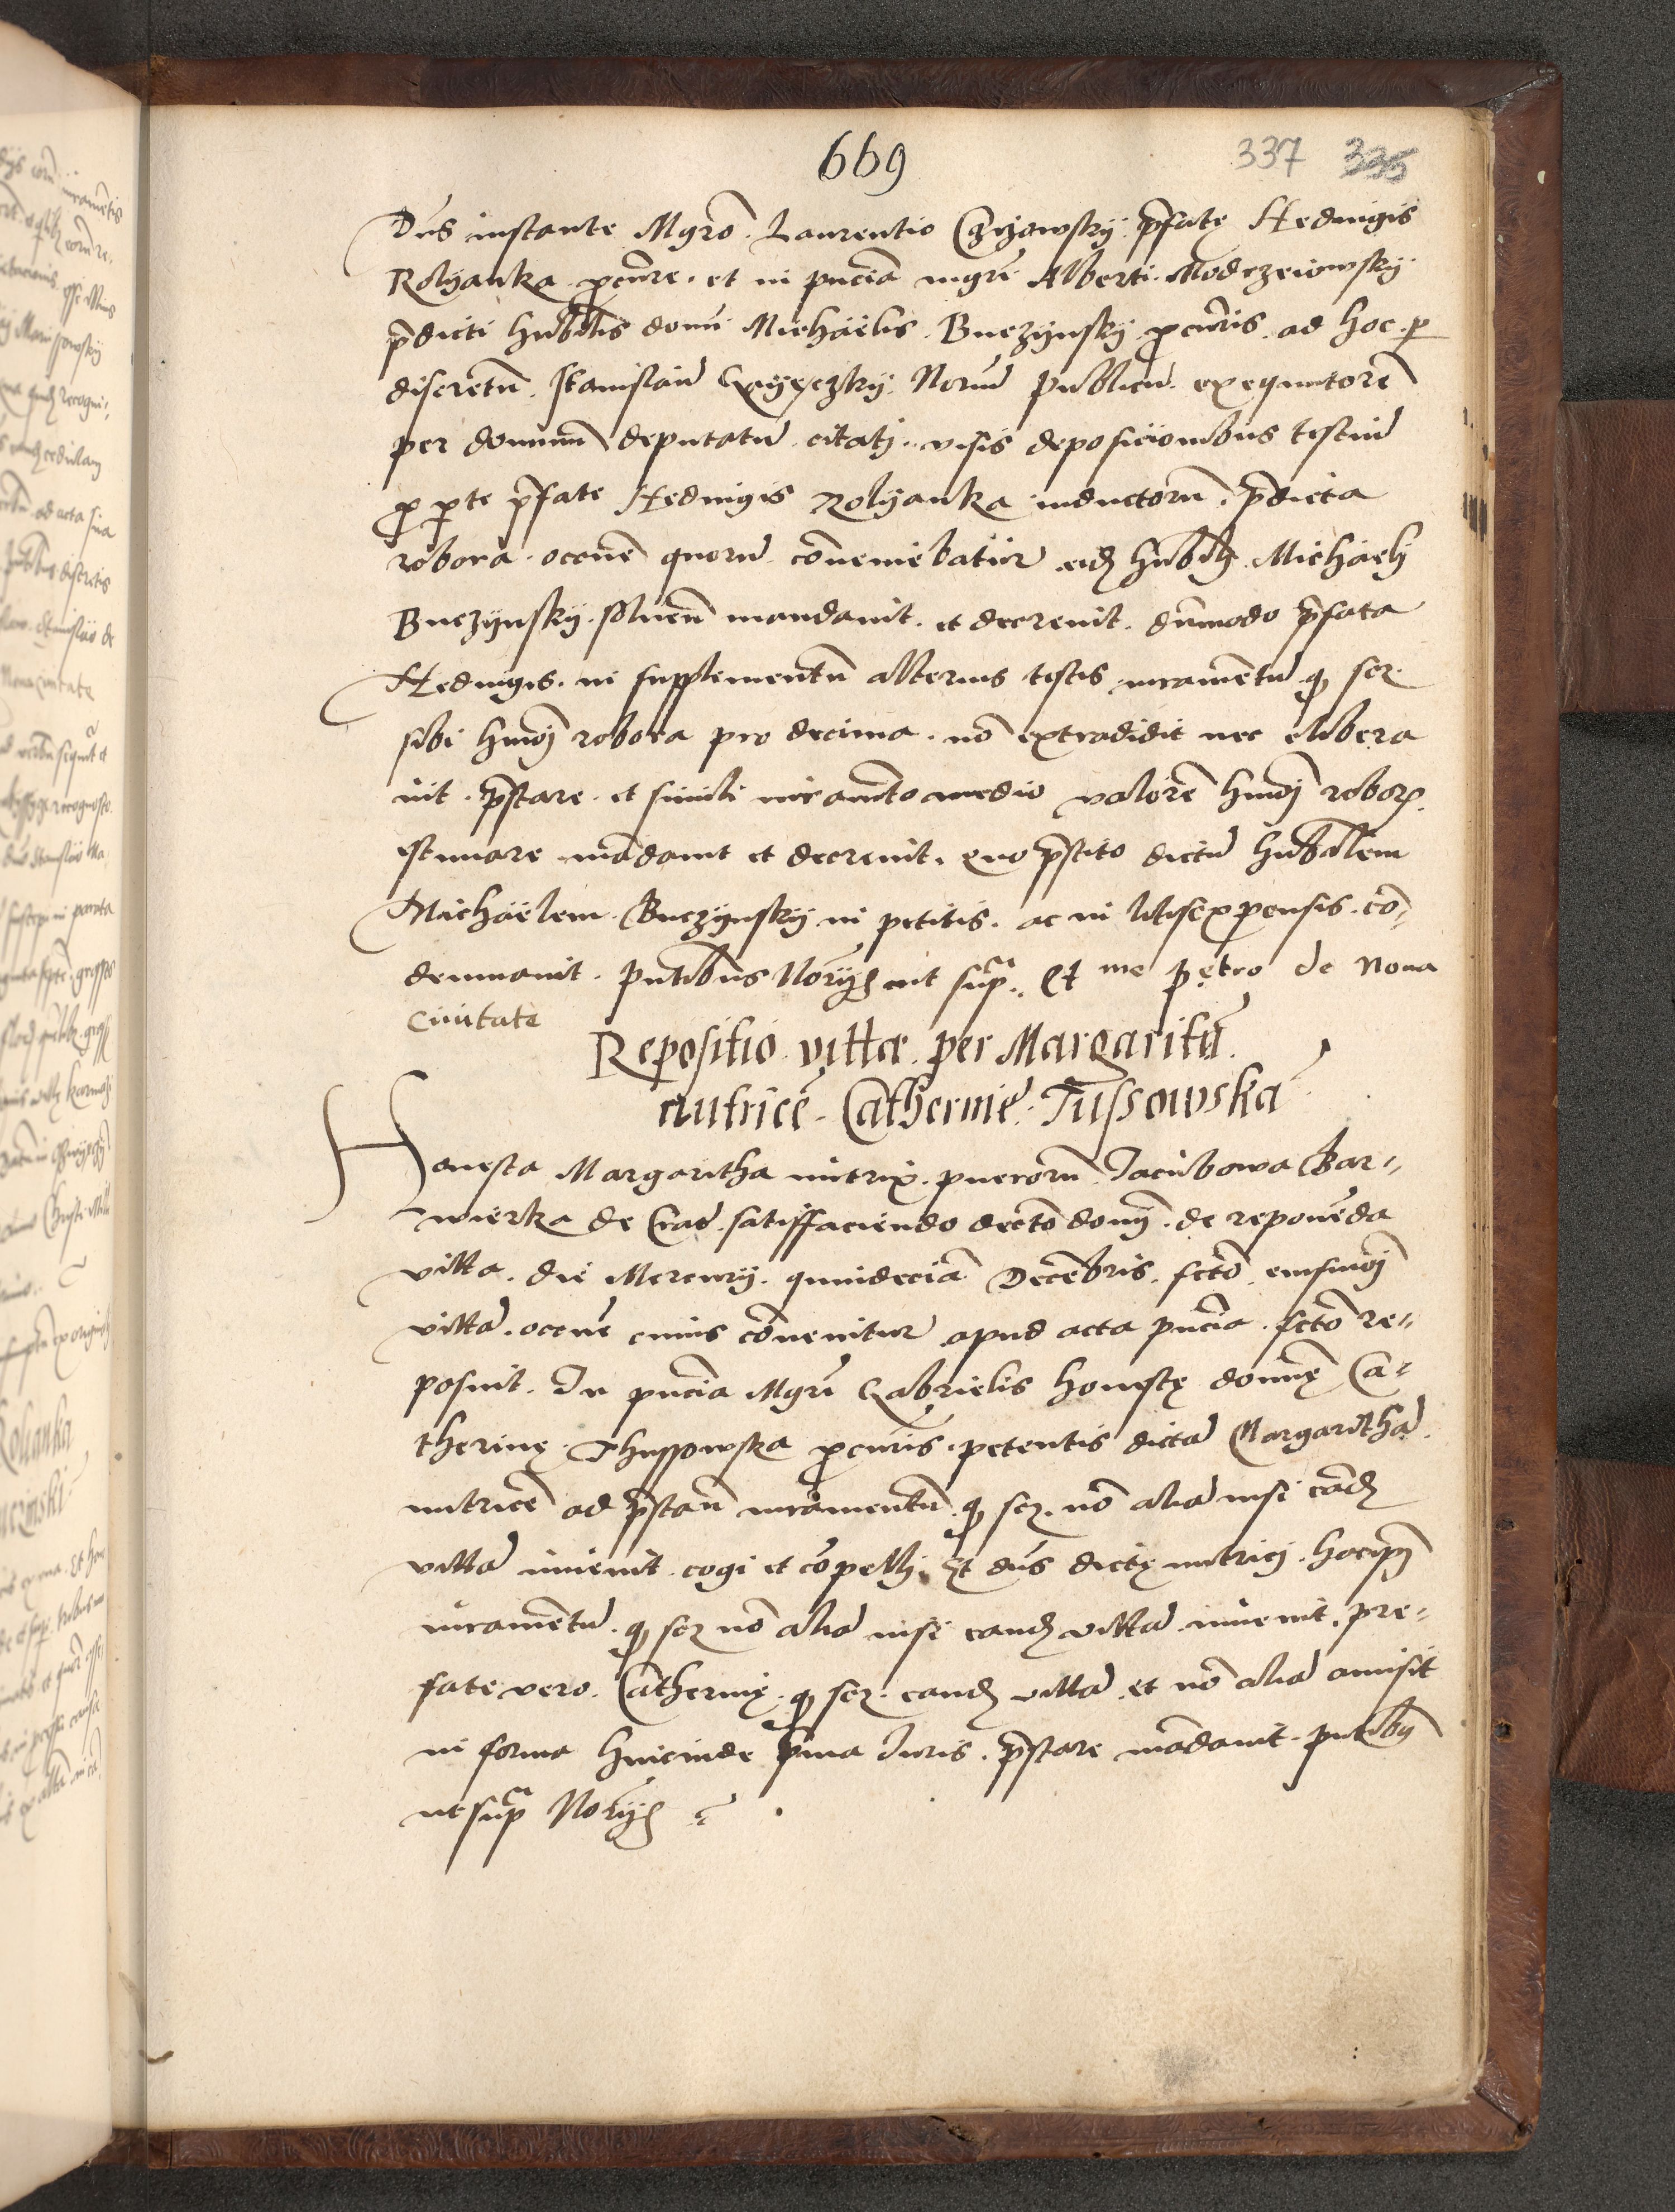 669 337 335
Dns instante Mgro. Laurentio Czyżowsky. pfatę Hedwigis
Rolyanka procure. et in pncia mgri Alberti. Modrzeiowsky
pdicti hnbilis domi Michaëlis. Buczynsky procuris. ad hoc. per
discretu. Stanislau Norium publicu. exequutore
per dominum deputatu. citati. visis deposicionibus testiu
pro parte pfate Hedwigis Rolyanka inductoru. pdicta
robora. occne quoru conveniebatur eid hnbili Michaeli
Buczynsky. solven mandavit. et decrevit. dummodo pfata
Hedwigis. in supplementu alterius testis iuramentu quod scz.
sibi hmoi robora pro decima. no extradidit nec elibera
vit. pstare. et simili iuramto medio valore hmoi robor.
estimare madavit et decrevit. quo pstito dictu hnbilem
Michaëlem. Buczynsky in petitis. ac in litisexpensis. co-
demnavit. pntibus Norijs ut supra. Et me petro de Nova
civitate
Repositio. vittæ. per Margaritā.
nutricē. Catherinē. Tussowska
Honesta Margaritha nutrix. pueroru. Jacubowa Bar-
wierka de Crac. satisfaciendo decto domj. de reponeda
vitta. die Mercurij. quindecia Decebris. fcto eiusmoi
vitta. occne cuius covenitur apud acta pncia. fcto re-
posuit. In pncia Mgri Gabrielis honestę domnę Ca-
therinę. Thussowska procuris. petentis dicta Margaritha.
nutrice ad pstan iuramentu. quod scz. no alia nisi eand
vitta invenit. cogi et copelli. Et dns dictę nutrici. hoc
iuramentu. quod scz no alia nisi eand vitta invenit. pre-
fate vero. Catherinę. quod scz. eand vitta. et no alia amisit
in forma hincinde pma Iuris. pstare madavit. pntibus
ut supra Norijs